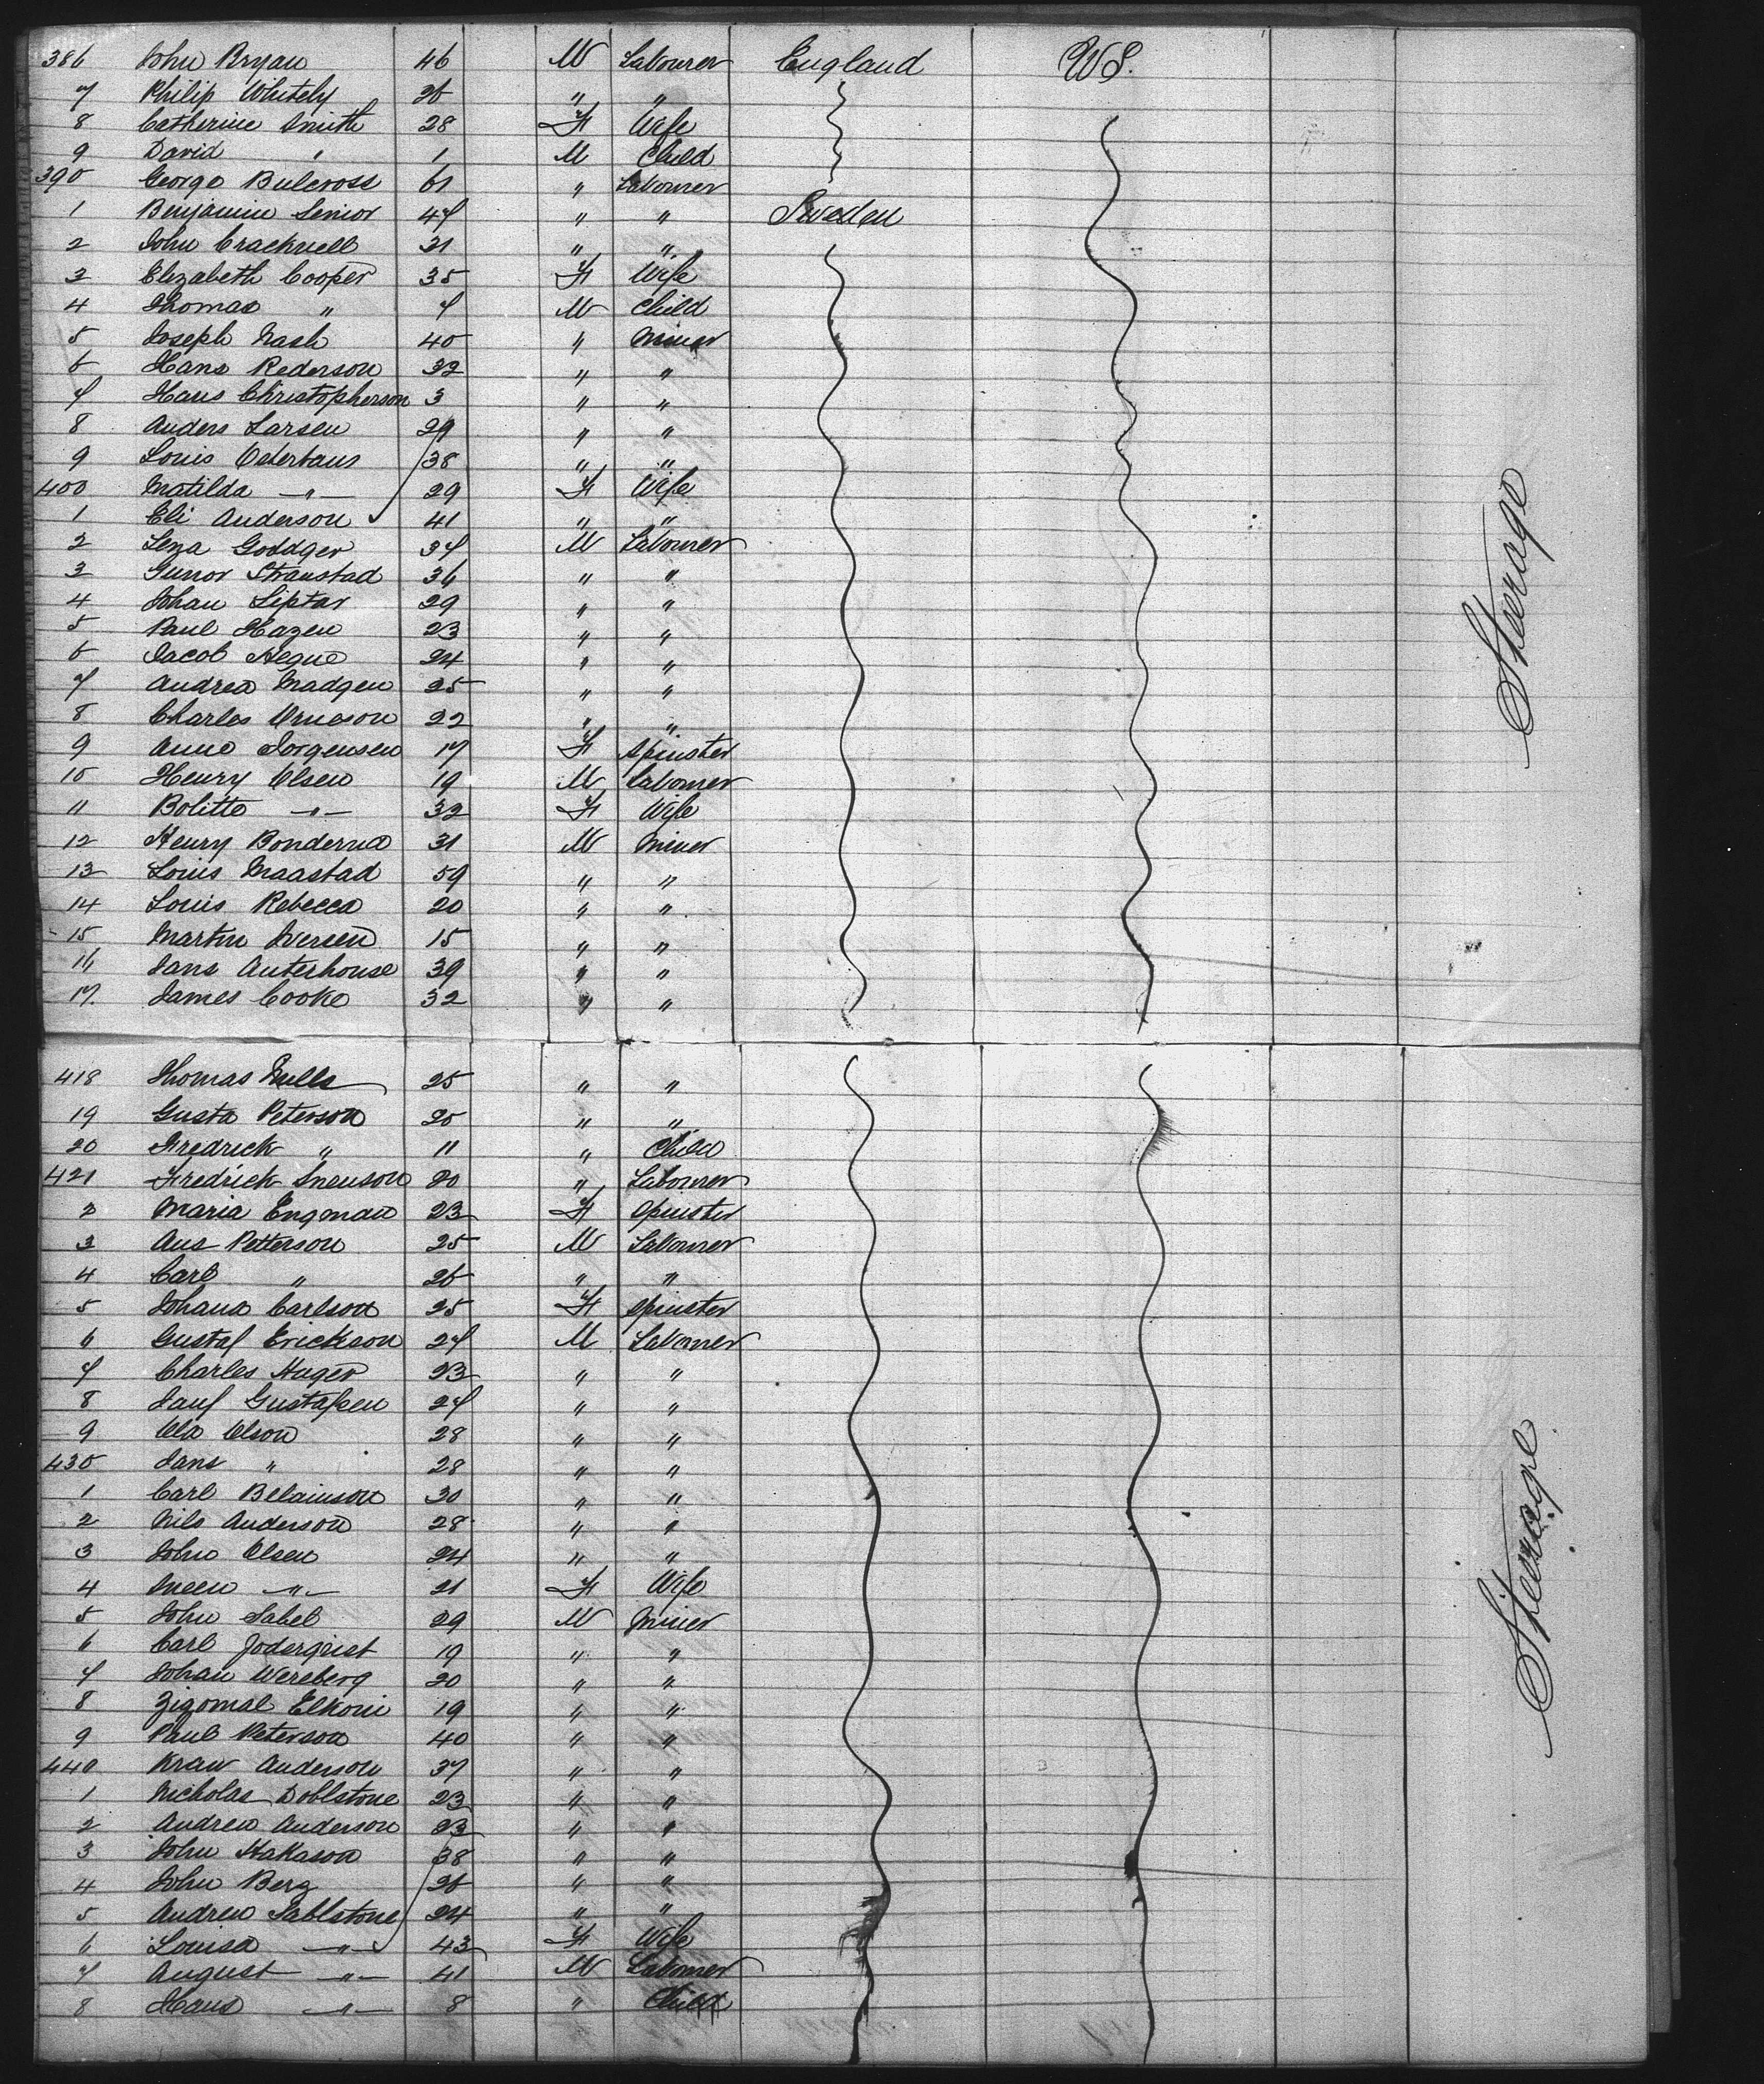 386 John Bryan 46 M Labourer England U.S.
7 Philip Whitely 26 " "
8 Catherine Smith 28 F Wife
9 David " 1 M Child
390 George Bulcross 61 " Labourer
1 Benjamin Senior 47 " " Sweden
2 John Cracknell 31 " "
3 Elizabeth Cooper 35 F Wife
4 Thomas " 7 M Child
5 Joseph Nash 40 " Miner
6 Hans Rederson 32 " "
7 Hans Christopherson 3 " "
8 Anders Larsen 29 " "
9 Louis 38 " "
400 Matilda " 29 F Wife
1 Eli Anderson 41 " "
2 Lena Goddger 37 M Labourer
3 Gunor Straustad 36 " "
4 Johan Liptar 29 " "
5 Paul Hazen 23 " "
6 Jacob 24 " "
7 Andrea Madgen 25 " "
8 Charles 22 " "
9 Anne Jorgensen 17 F Spinster
10 Henry Olsen 19 M Labourer
11 Bolitte " 32 F Wife
12 Henry 31 M Miner
13 Louis Maastad 59 " "
14 Louis Rebecca 20 " "
15 Martin Iversen 15 " "
16 Jans Auterhouse 39 " "
17 James Cooke 32 " "
Steerage
418 Thomas Mills 25 " "
19 Gusta Peterson 25 " "
20 Fredrick " 11 " Child
421 Fredrick Snenson 20 " Labourer
2 Maria Engman 23 F Spinster
3 Aus Petterson 25 M Labourer
4 Carl " 26 " "
5 Johana Carlson 25 F Spinster
6 Gustaf Erickson 27 M Labourer
7 Charles Huger 23 " "
8 Gustafsen 27 " "
9 Ola Olson 28 " "
430 Jans " 28 " "
1 Carl Belainson 30 " "
2 Nils Anderson 28 " "
3 John Olsen 24 " "
4 " 21 F Wife
5 John Sabel 29 M Miner
6 Carl Joderqvist 19 " "
7 Johan Wereberg 20 " "
8 Zigomal Elkoni 19 " "
9 Paul Peterson 40 " "
440 Kraw Anderson 37 " "
1 Nicholas Doblstone 23 " "
2 Andrew Anderson 23 " "
3 John Hakason 38 " "
4 John Berg 26 " "
5 Andrew Sablstone 24 " "
6 Louisa " 43 F Wife
7 August " 41 M Labourer
8 Hans " 8 " Child
Steerage